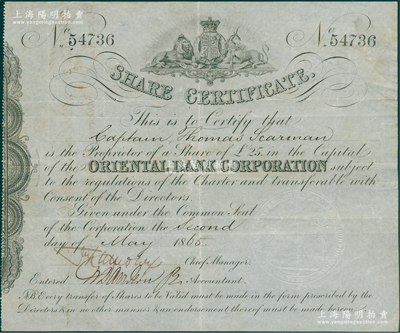 上海陽明拍賣
www.yangmingauction.com
No. 54736 No. 54736
SHARE CERTIFICATE.
This is to Certify that
Captain Thomas Scarman
is the Proprietor of a Share of £25, in the Capital
of the ORIENTAL BANK CORPORATION subject
to the regulations of the Charter and transferable with
Consent of the Directors.
Given under the Common Seal
of the Corporation the Second
day of May 1865.
Chief Manager.
Entered Accountant.
NB. Every transfer of Shares to be Valid must be made in the form prescribed by the
Directors & in no other manner & an endorsement thereof must be made hereon.
上海陽明拍賣
www.yangmingauction.com